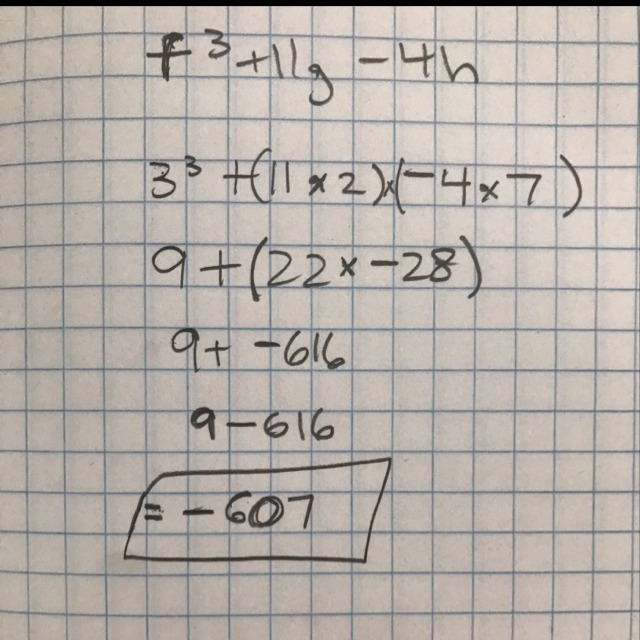 F³ + 11g - 4h
3³ + (11 × 2) × (-4 × 7)
9 + (22 × -28)
9 + -616
9 - 616
= -607